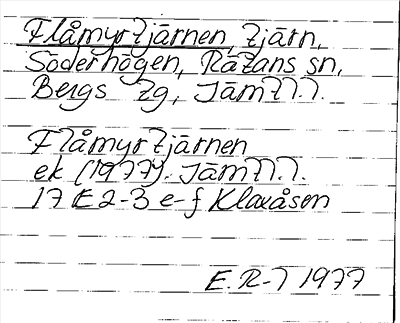 Flåmyrtjärnen, tjärn,
Söderhögen, Rätans sn,
Bergs tg, Jämtl.
Flåmyrtjärnen
ek (1977). Jämtl.
17 E 2-3 e-f Klaxåsen
E.R-l 1977